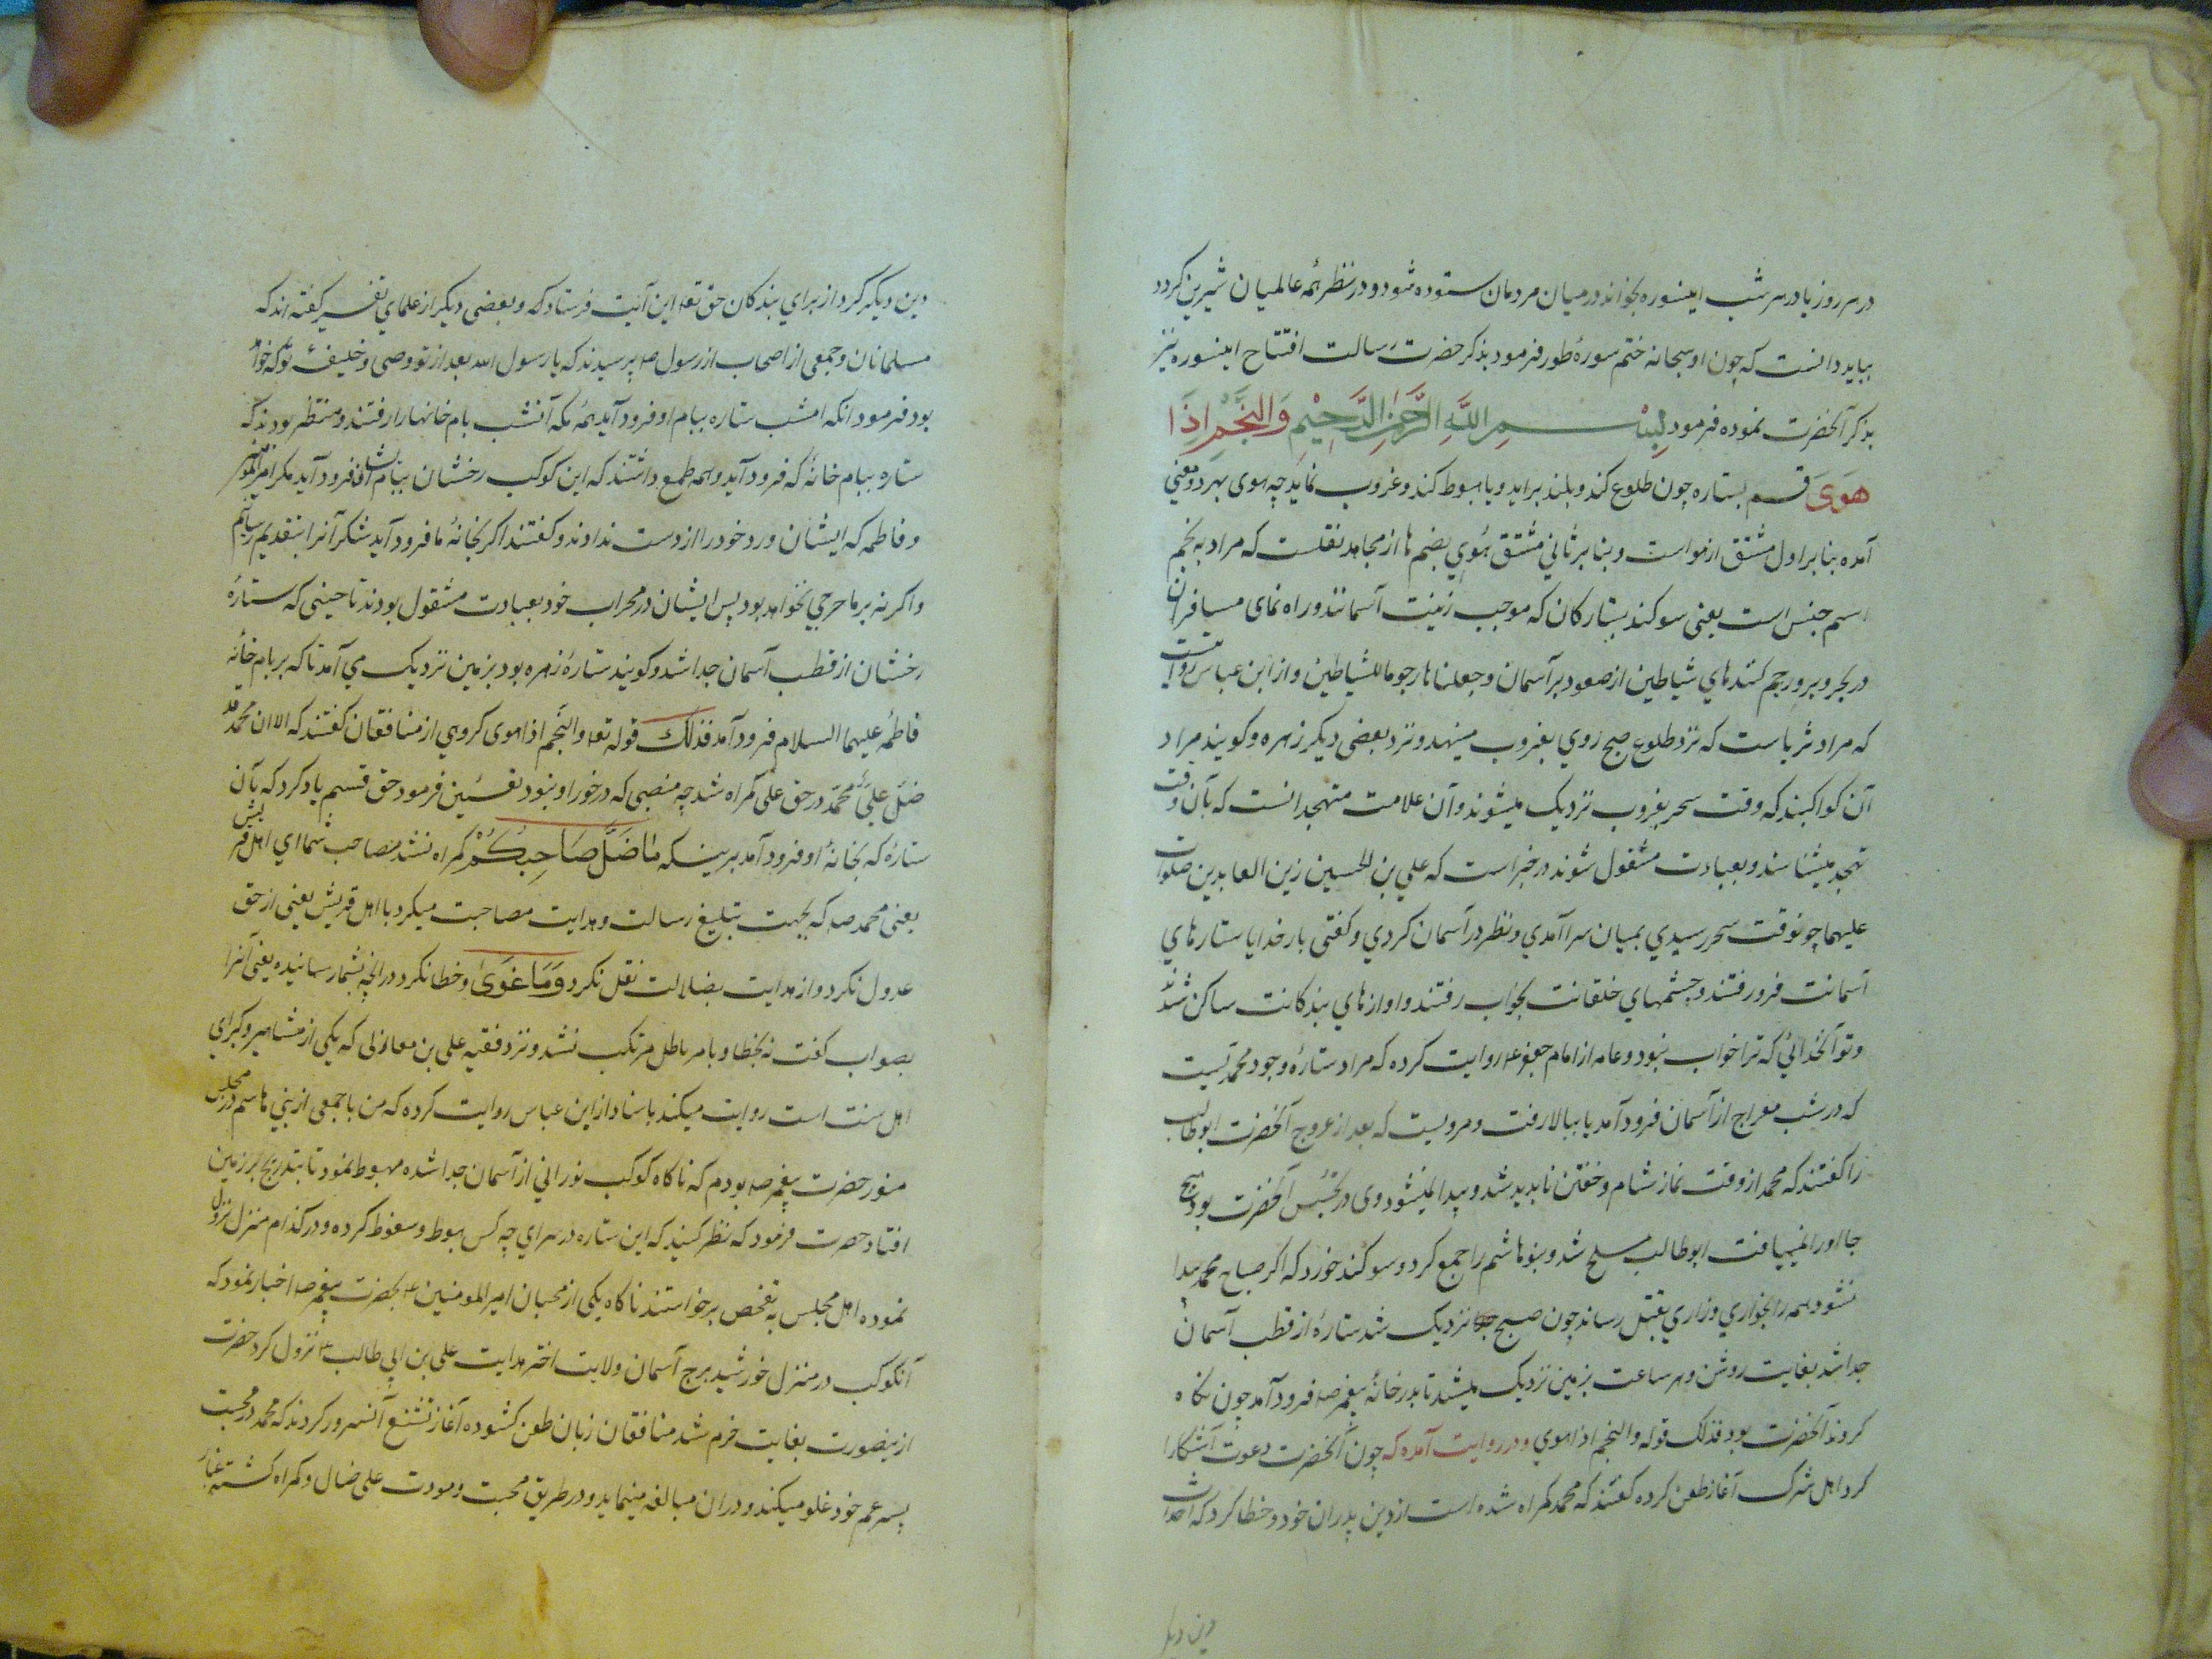 در هر روز یا در هر شب اینسوره بخواند در میان مردمان ستوده شود و در نظر همه عالمیان شیرین کردد
بباید دانست که چون او سبحانه ختم سورهٔ طور فرمود بذکر حضرت رسالت افتتاح اینسوره نیز
بذکر آنحضرت نموده فرمود بِسْمِ اللَّهِ الرَّحْمٰنِ الرَّحِیْمِ وَالنَّجْمِ اِذَا
هَوَیَ قسم بستاره چون طلوع کند و بلند براید و یا هبوط کند و غروب نماید چه هوی بهر دو معنی
آمده بنا بر اول مشتق از هوا است و بنا بر ثانی مشتق هُوِی بضم ها از مجاهد نقلست که مراد به نجم
اسم جنس است یعنی سوکند بستارکان که موجب زینت آسمانند و راه نمای مسافران
در بحر و بر و رجم کنندهای شیاطین از صعود بر آسمان و جعلناها رجوما للشیاطین و از ابن عباس روایتست
که مراد ثریاست که نزد طلوع صبح روی بغروب مینهد و نزد بعضی دیکر زهره و کویند مراد
آن کواکبند که وقت سحر بغروب نزدیک میشوند و آن علامت متهجدانست که بآن وقت
تهجد میشناسند و بعبادت مشغول شوند در خبر است که علی بن الحسین زین العابدین صلوات
علیهما چونوقت سحر رسیدی بمیان سرا آمدی و نظر در آسمان کردی و کفتی بار خدایا ستارهای
آسمانت فرو رفتند و چشمهای خلقانت بخواب رفتند و اوازهای بندکانت ساکن شد
و تو آنخدائی که ترا خواب نبود و عامه از امام جعفر ع روایت کرده که مراد ستارهٔ وجود محمدیست
که در شب معراج از آسمان فرود آمد یا ببالا رفت و مرویست که بعد از عروج آنحضرت ابوطالب
را کفتند که محمد از وقت نماز شام و خفتن ناپدید شد و پیدا نمیشود وی در تجسس آنحضرت بود هیچ
جا او را نمییافت ابوطالب مسلح شد و بنو هاشم را جمع کرد و سوکند خورد که اکر صباح محمد پیدا
نشود همه را بخواری و زاری بقتل رساند چون صبح نزدیک شد ستارهٔ از قطب آسمان
جدا شد بغایت روشن و هر ساعت بزمین نزدیک میشد تا بدر خانهٔ پیغمبر ص فرود آمد چون نکاه
کردند آنحضرت بود فذلک قوله والنجم اذا هوی و در روایت آمده که چون آنحضرت دعوت آشکارا
کرد اهل شرک آغاز طعن کرده کفتند که محمد کمراه شده است از دین پدران خود و خطا کرد که احداث
دین دیکر
دین دیکر کرد از برای بندکان حق تع این آیت فرستاد که و بعضی دیکر از علمای تفسیر کفته اند که
مسلمانان و جمعی از اصحاب از رسول ص پرسیدند که یا رسول الله بعد از تو وصی و خلیفهٔ تو که خواهد
بود فرمود انکه امشب ستاره ببام او فرود آید همهٔ مکه آنشب بام خانها را رفتند و منتظر بودند که
ستاره ببام خانهٔ که فرود آید و همه طمع داشتند که این کوکب رخشان ببام ایشان فرود آید مکر امیر المؤمنین
و فاطمه که ایشان ورد خود را از دست ندادند و کفتند اکر بخانهٔ ما فرود آید شکر آنرا بتقدیم رسانیم
و اکر نه بر ما حرجی نخواهد بود پس ایشان در محراب خود بعبادت مشغول بودند تا حینی که ستارهٔ
رخشان از قطب آسمان جدا شد و کویند ستارهٔ زهره بود بزمین نزدیک می آمد تا که بر بام خانهٔ
فاطمه علیهما السلام فرود آمد فذلک قوله تع والنجم اذا هوی کروهی از منافقان کفتند که الا ان محمدا قد
ضلّ علیّ محمّد در حق علی کمراه شد چه منصبی که در خور او نبود تعیین فرمود حق قسم یاد کرد که بآن
ستارهٔ که بخانهٔ او فرود آمد برینکه مَا ضَلَّ صَاحِبُکُمْ کمراه نشد مصاحب شما ای اهل قریش
یعنی محمد ص که بجهت تبلیغ رسالت و هدایت مصاحبت میکرد با اهل قریش یعنی از حق
عدول نکرد و از هدایت بضلالت نقل نکرد وَمَا غَوَیٰ و خطا نکرد در انچه بشما رسانیده یعنی آنرا
بصواب کفت نه بخطا و بامر باطل مرتکب نشد و نزد فقیه علی بن مغازلی که یکی از مشاهیر و کبرای
اهل سنت است روایت میکند باسناد از ابن عباس روایت کرده که من با جمعی از بنی هاشم در مجلس
منور حضرت پیغمبر ص بودم که ناکاه کوکب نورانی از آسمان جدا شده هبوط نمود تا بتدریج بر زمین
افتاد حضرت فرمود که نظر کنید که این ستاره در سرای چه کس هبوط و سقوط کرده و در کدام منزل نزول
نموده اهل مجلس به تفحص برخواستند ناکاه یکی از محبان امیر المومنین ع بحضرت پیغمبر ص اخبار نمود که
آنکوکب در منزل خورشید برج آسمان ولایت اختر هدایت علی بن ابی طالب ع نزول کرد حضرت
ازینصورت بغایت خرم شد منافقان زبان طعن کشوده آغاز تشنع آنسرور کردند که محمد در محبت
پسر عم خود غلو میکند و در ان مبالغه مینماید و در طریق محبت و مودت علی ضال و کمراه کشته